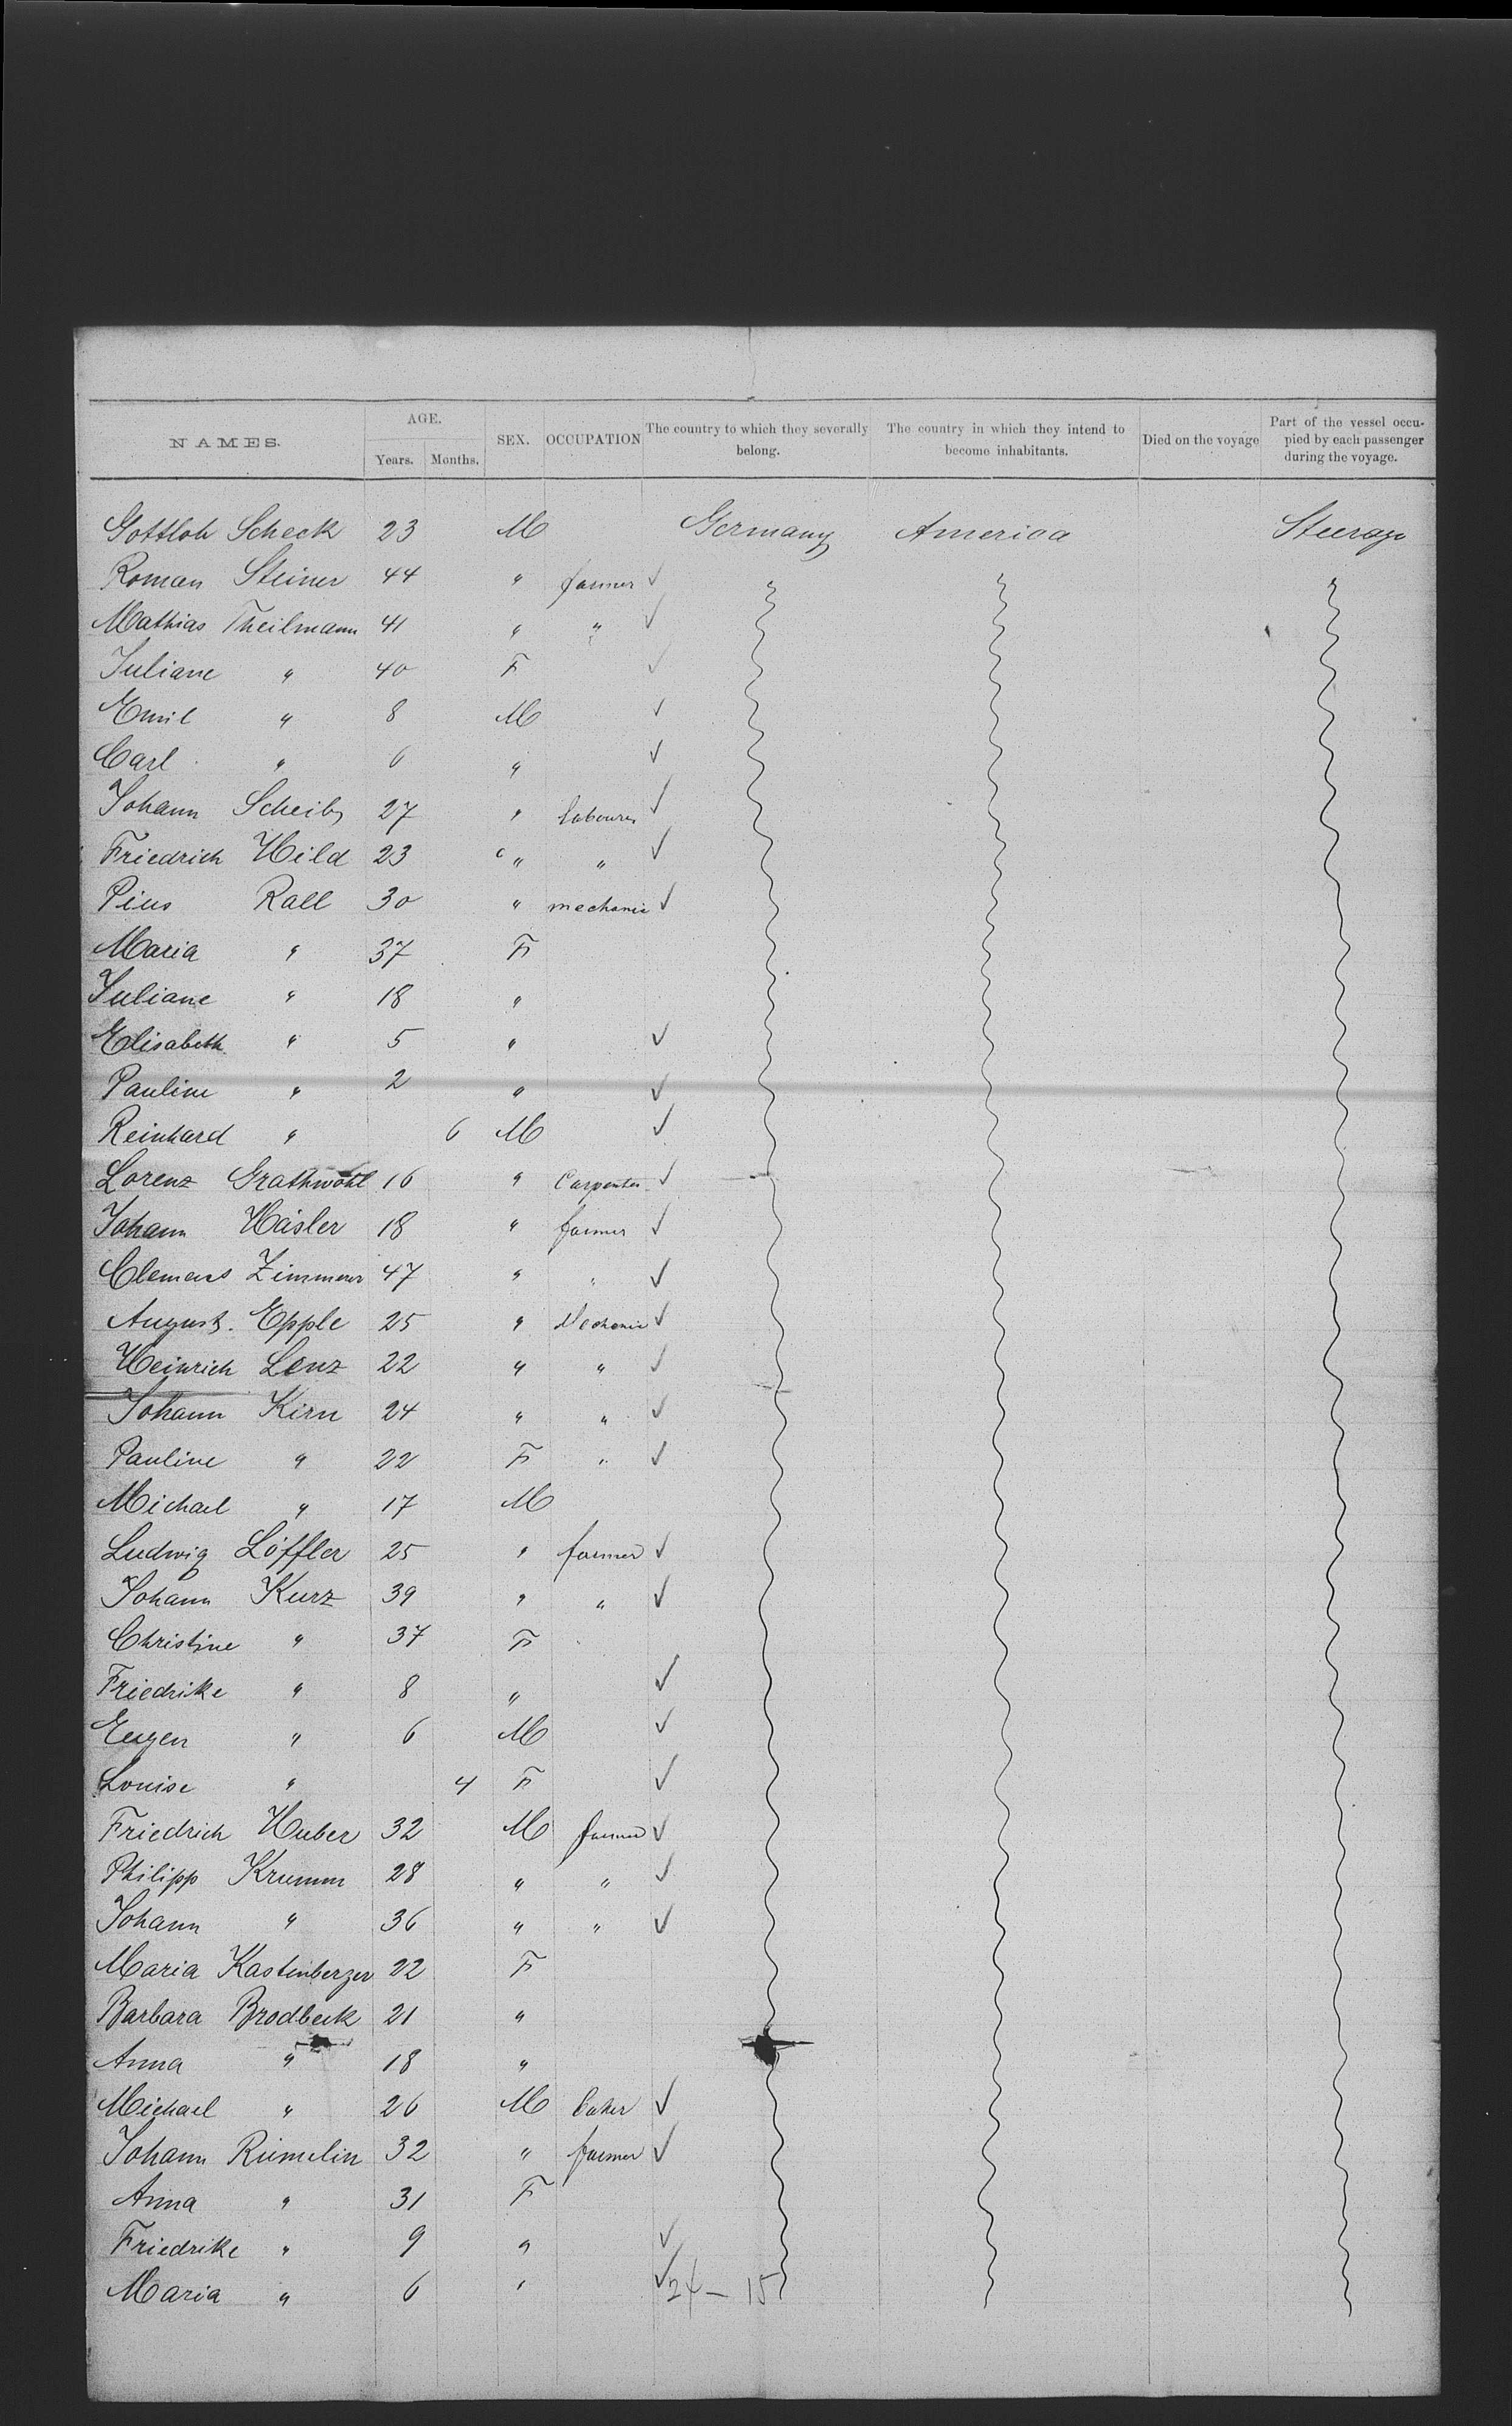 NAMES. AGE. Years. Months. SEX. OCCUPATION The country to which they severally belong. The country in which they intend to become inhabitants. Died on the voyage Part of the vessel occupied by each passenger during the voyage.
Gottlob Scheck 23 M Germany America Steerage
Roman Steiner 44 " farmer ✓ " " "
Mathias Theilmann 41 " " ✓
Juliane " 40 F ✓
Emil " 8 M ✓
Carl " 6 " ✓
Johann Scheib 27 " labourer ✓
Friedrich Hild 23 " " ✓
Pius Rall 30 " mechanic ✓
Maria " 37 F
Juliane " 18 "
Elisabeth " 5 " ✓
Pauline " 2 " ✓
Reinhard " 6 M ✓
Lorenz Grathwohl 16 " Carpenter ✓
Johann Häsler 18 " farmer ✓
Clemens Zimmerer 47 " " ✓
August. Epple 25 " Mechanic ✓
Heinrich Lenz 22 " " ✓
Johann Kirn 24 " " ✓
Pauline " 22 F " ✓
Michael " 17 M
Ludwig Löffler 25 " farmer ✓
Johann Kurz 39 " " ✓
Christine " 37 F
Friedrike " 8 " ✓
Eugen " 6 M ✓
Louise " 4 F ✓
Friedrich Huber 32 M farmer ✓
Philipp Krumm 28 " " ✓
Johann " 36 " " ✓
Maria Kastenberger 22 F
Barbara Brodbeck 21 "
Anna " 18 "
Michael " 26 M baker ✓
Johann Rümelin 32 " farmer ✓
Anna " 31 F
Friedrike " 9 " ✓
Maria " 6 " ✓ 24 – 15